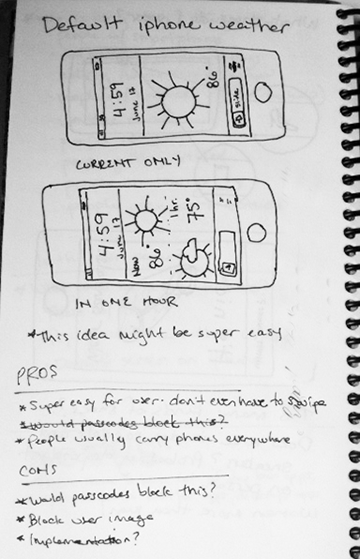 Default iphone weather
4:59
June 17
86°
CURRENT ONLY
4:59
June 17
Now
86°
1 hr.
75°
IN ONE HOUR
*This idea might be super easy
PROS
*Super easy for user. don't even have to swipe
*Would passcodes block this?
*People usually carry phones everywhere
CONS
*Would passcodes block this?
*Block user image
*Implementation?